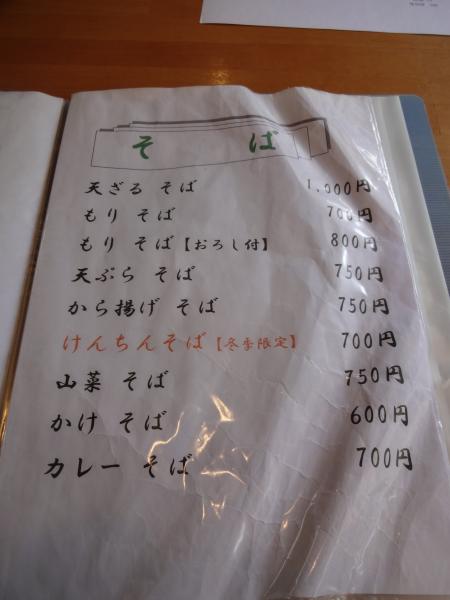 そ ば
天ざる そば 1,000円
もり そば 700円
もり そば【おろし付】 800円
天ぷら そば 750円
から揚げ そば 750円
けんちんそば【冬季限定】 700円
山菜 そば 750円
かけ そば 600円
カレー そば 700円